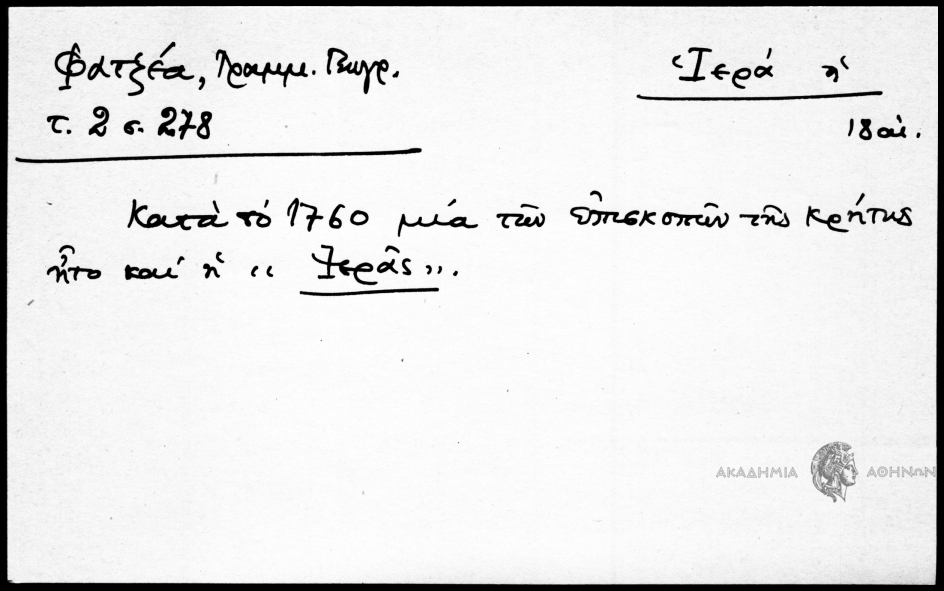 Φατζέα, Γραμμ. Γεωγρ.
τ. 2 σ. 278
Ἱερά ἡ
18 αἰ.
Κατὰ τό 1760 μία τῶν ἐπισκοπῶν τῆς Κρήτης
ἦτο καί ἡ «Ἱερᾶς».
ΑΚΑΔΗΜΙΑ ΑΘΗΝΩΝ